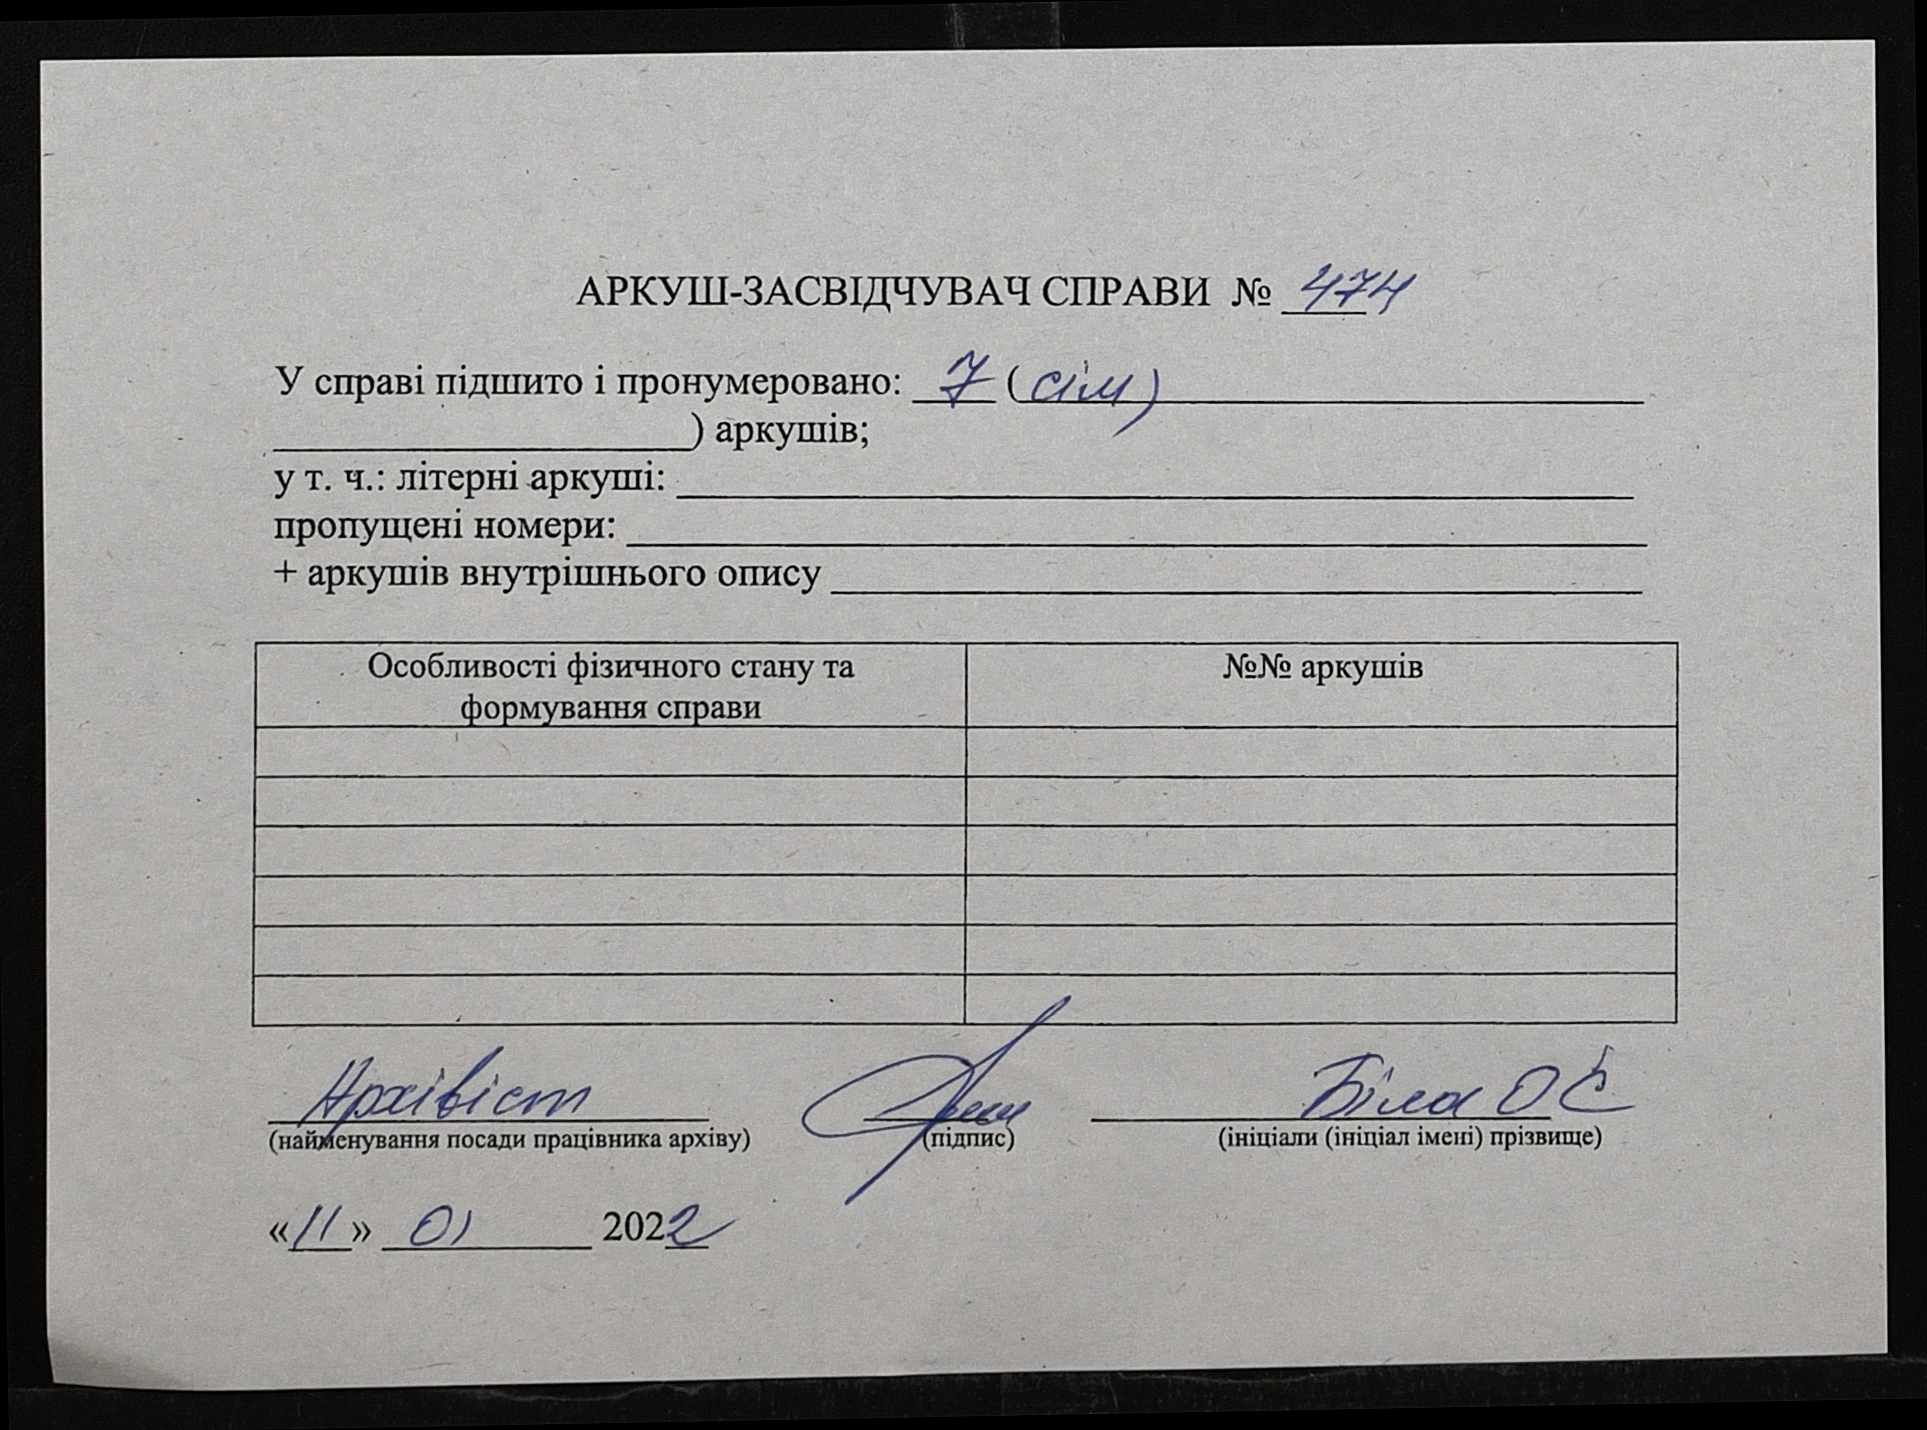 АРКУШ-ЗАСВІДЧУВАЧ СПРАВИ № 474
У справі підшито і пронумеровано: 7 (сім)
) аркушів;
у т. ч.: літерні аркуші:
пропущені номери:
+ аркушів внутрішнього опису
Особливості фізичного стану та
формування справи
№№ аркушів
Архівіст Біла О Є
(найменування посади працівника архіву) (підпис) (ініціали (ініціал імені) прізвище)
«11» 01 2022